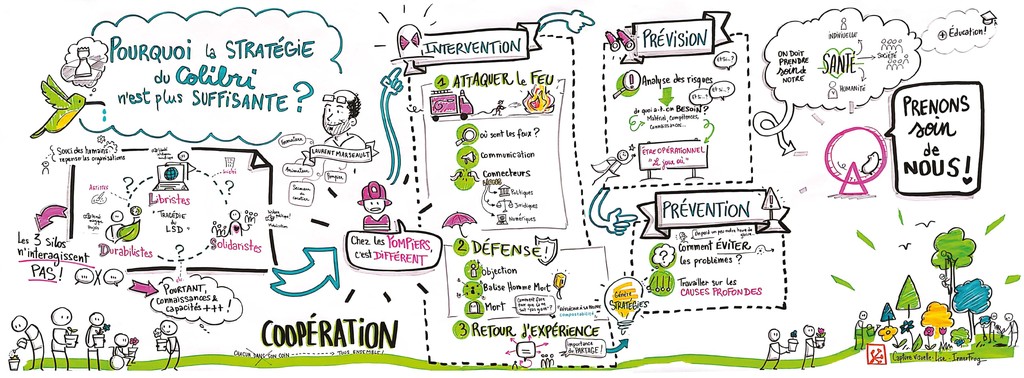 POURQUOI la STRATÉGIE
du Colibri
n'est plus SUFFISANTE ?
Souci des humains
repenser les organisations
LIBRISTES
TRAGÉDIE
du
LSD
DURABILISTES
SOLIDARISTES
Les 3 silos
n'interagissent
PAS !
POURTANT,
connaissances &
capacités +++ !
LAURENT MARSEAULT
Formateur
Animation
Pompier
Chez les POMPIERS,
c'est DIFFÉRENT
COOPÉRATION
CHACUN DANS SON COIN
TOUS ENSEMBLE !
INTERVENTION
1 ATTAQUER le FEU
où sont les faux ?
communication
Connecteurs
Politiques
Juridiques
Numériques
2 DÉFENSE
objection
Balise Homme Mort
Mort
compostabilité
3 RETOUR d'EXPÉRIENCE
importance
du PARTAGE !
PRÉVISION
Analyse des risques
et si...?
et si...?
et si...?
de quoi a-t-on BESOIN ?
Matériel, compétences,
connaissances...
ÊTRE OPÉRATIONNEL
"le jour où"
PRÉVENTION
Comment ÉVITER
les problèmes ?
Travailler sur les
CAUSES PROFONDES
STRATÉGIES
ON DOIT
PRENDRE
soin de
NOTRE
SANTÉ
INDIVIDUELLE
SOCIÉTÉ
HUMANITÉ
+ Éducation !
PRENONS
soin
de
NOUS !
Capture Visuelle